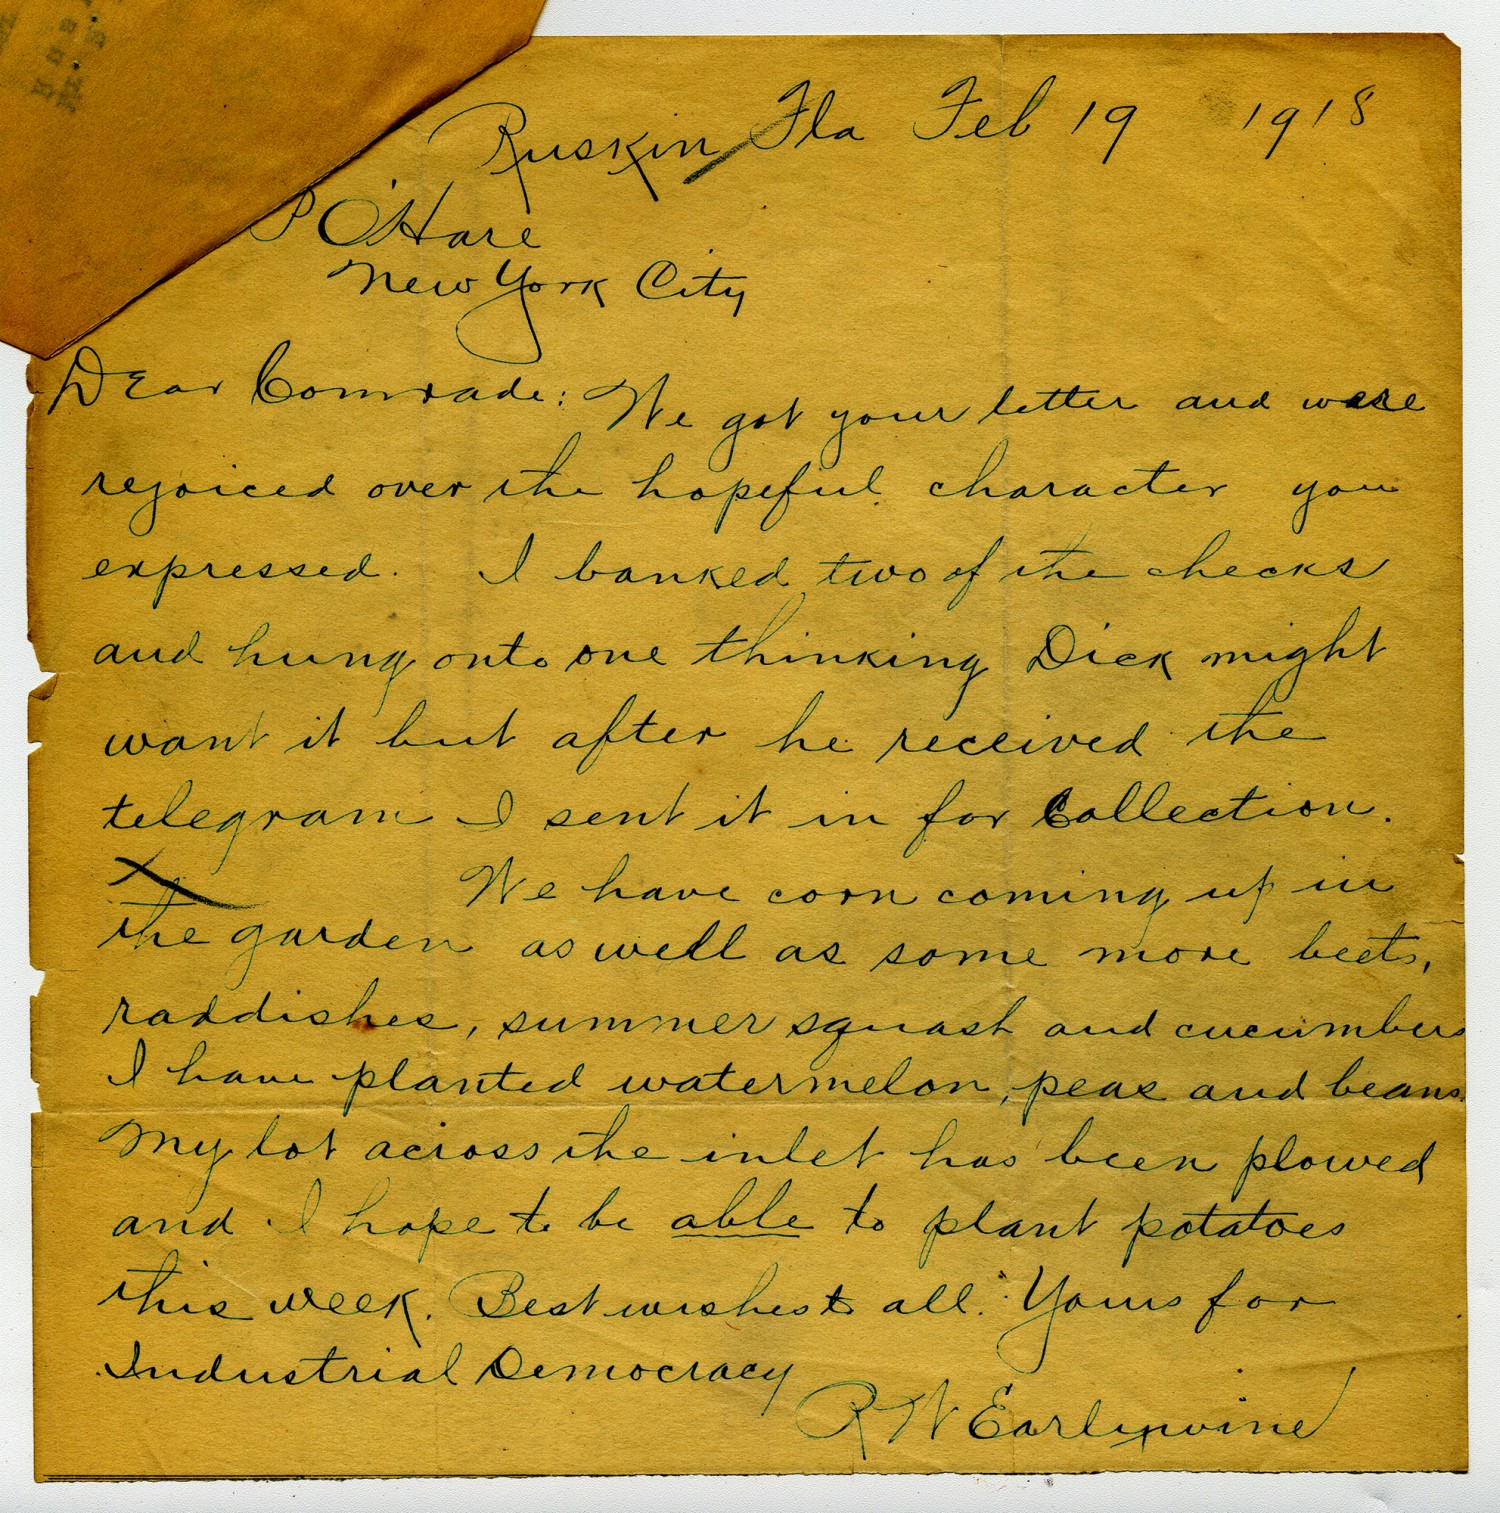 Ruskin, Fla Feb 19 1918
P O'Hare
New York City
Dear Comrade: We got your letter and were
rejoiced over the hopeful character you
expressed. I banked two of the checks
and hung onto one thinking Dick might
want it but after he received the
telegram I sent it in for Collection.
We have corn coming up in
the garden as well as some more beets,
raddishes, summer squash and cucumbers
I have planted watermelon, peas and beans.
My lot across the inlet has been plowed
and I hope to be able to plant potatoes
this week. Best wishes to all. Yours for
Industrial Democracy
R W Earlywine